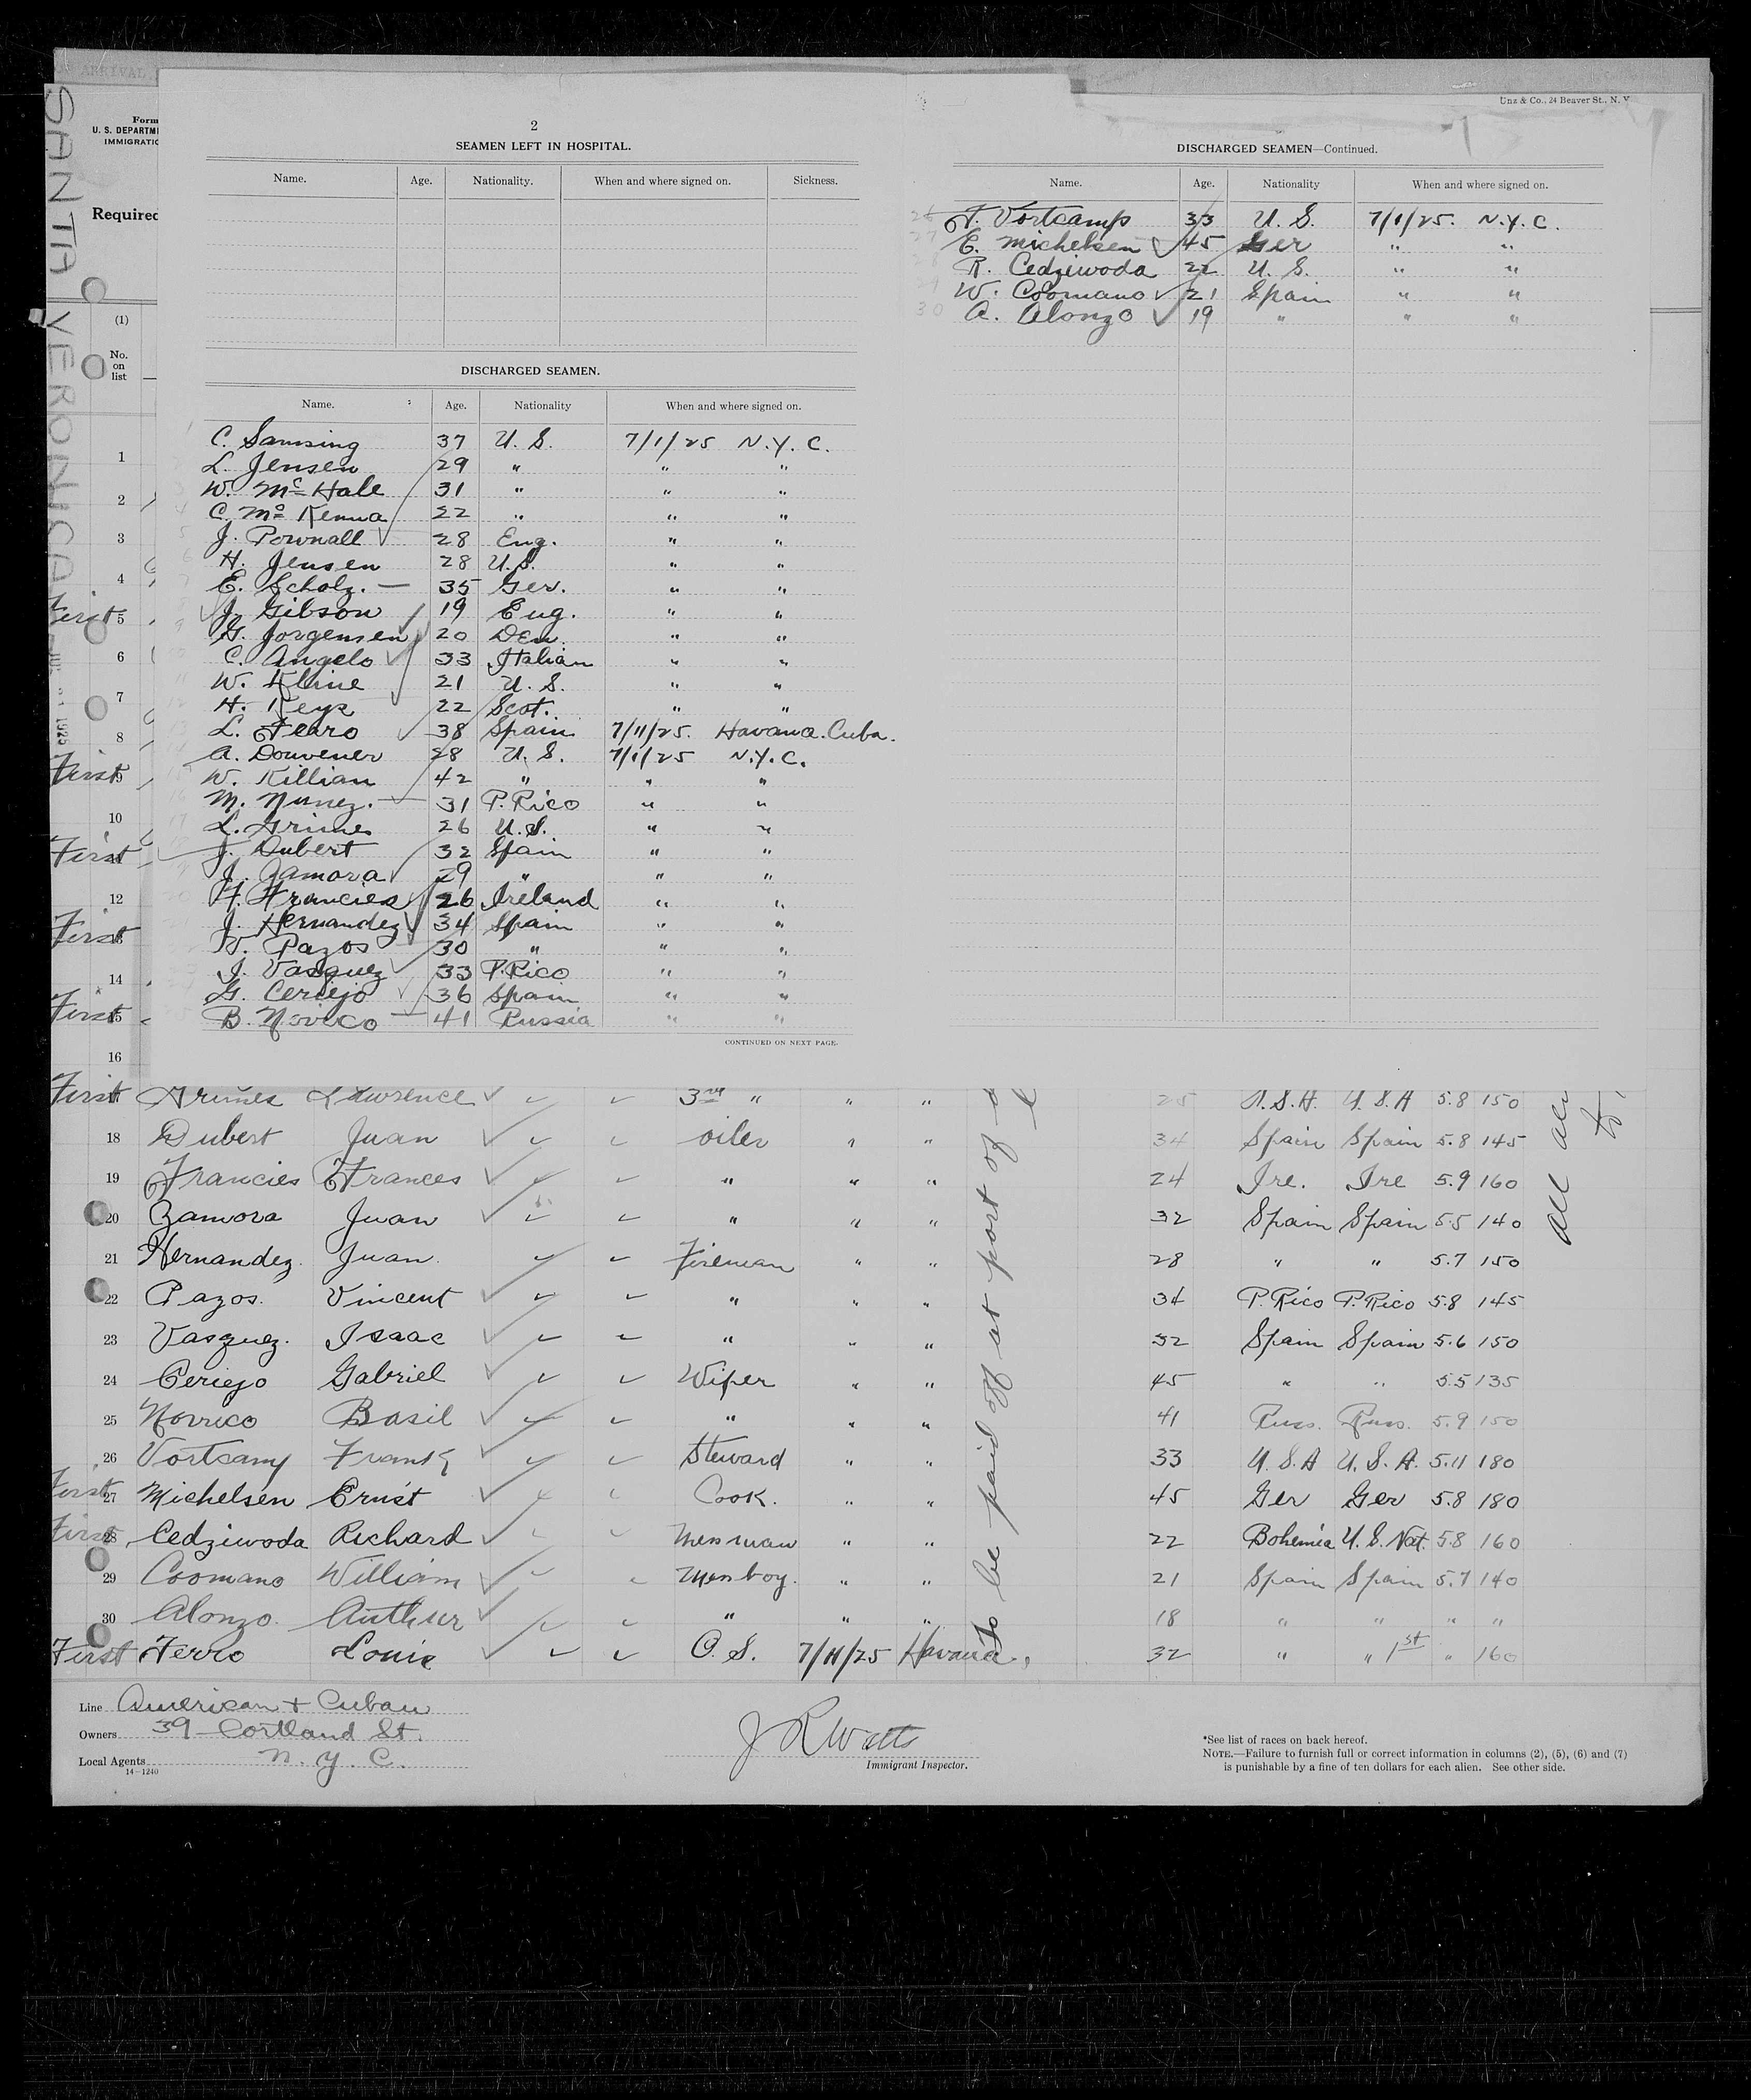 ARRIVAL
SANTA VERONICA
Form
U. S. DEPARTM
IMMIGRATIO
Required
(1)
No.
on
list
Unz & Co., 24 Beaver St., N. Y.
2
SEAMEN LEFT IN HOSPITAL.
Name. Age. Nationality. When and where signed on. Sickness.
DISCHARGED SEAMEN.
Name. Age. Nationality When and where signed on.
C. Samsing 37 U. S. 7/1/25 N.Y.C.
L. Jensen 29 " " "
W. McHale 31 " " "
C. McKenna 22 " " "
J. Pownall 28 Eng. " "
H. Jensen 28 U.S. " "
E. Scholz. 35 Ger. " "
J. Gibson 19 Eng. " "
G. Jorgensen 20 Den. " "
C. Angelo 33 Italian " "
W. Kline 21 U. S. " "
H. Keys 22 Scot. " "
L. Ferro 38 Spain 7/11/25. Havana. Cuba.
A. Douvener 28 U. S. 7/1/25 N.Y.C.
W. Killian 42 " " "
M. Nunez. 31 P. Rico " "
L. Grimes 26 U.S. " "
J. Dubert 32 Spain " "
J. Zamora 29 " " "
F. Francies 26 Ireland " "
J. Hernandez 34 Spain " "
V. Pazos 30 " " "
I. Vasquez 33 P.Rico " "
G. Ceriejo 36 Spain " "
B. Novico 41 Russia " "
CONTINUED ON NEXT PAGE.
DISCHARGED SEAMEN—Continued.
Name. Age. Nationality When and where signed on.
26 F. Vortcamp 33 U. S. 7/1/25. N.Y.C.
27 E. Michelsen 45 Ger " "
28 R. Cedziwoda 22 U. S. " "
29 W. Coomano 21 Spain " "
30 A. Alonzo 19 " " "
1
2
3
4
First 5
6
7
8
First 9
10
First 11
12
First 13
14
First 15
16
First 17 Grimes Lawrence 3rd " " " 25 U.S.A. U.S.A 5.8 150
18 Dubert Juan oiler " " 34 Spain Spain 5.8 145
19 Francies Frances " " " 24 Ire. Ire 5.9 160
20 Zamora Juan " " " 32 Spain Spain 5.5 140
21 Hernandez. Juan. Fireman " " 28 " " 5.7 150
22 Pazos. Vincent " " " 34 P. Rico P. Rico 5.8 145
23 Vasquez. Isaac " " " 32 Spain Spain 5.6 150
24 Ceriejo Gabriel Wiper " " 45 " " 5.5 135
25 Novrico Basil " " " 41 Russ. Russ. 5.9 150
26 Vortcamp Frank Steward " " 33 U.S.A U.S.A. 5.11 180
First 27 Michelsen Ernst Cook. " " 45 Ger Ger 5.8 180
First 28 Cedziwoda Richard Messman " " 22 Bohemia U.S. Nat. 5.8 160
29 Coomano William Messboy. " " 21 Spain Spain 5.7 140
30 Alonzo. Authur " " " 18 " " " "
First Ferro Louis O. S. 7/11/25 Havana. 32 " " 1st " 160
To be paid off at port of
all
Line American & Cuban
Owners 39 Cortland St.
Local Agents N. Y. C.
14—1240
J R Watts
Immigrant Inspector.
*See list of races on back hereof.
NOTE.—Failure to furnish full or correct information in columns (2), (5), (6) and (7)
is punishable by a fine of ten dollars for each alien. See other side.